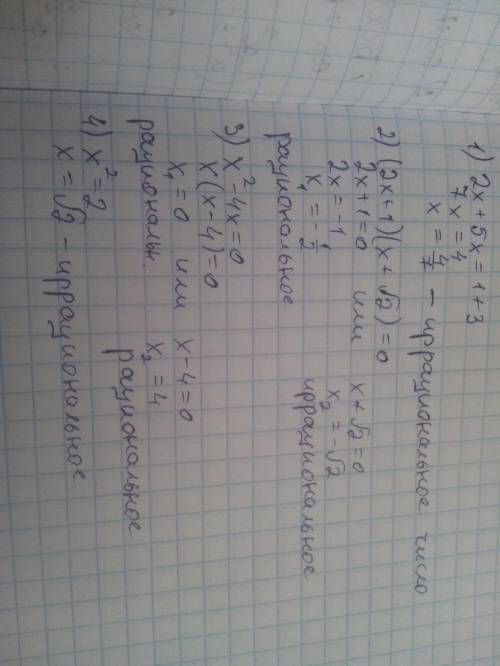 1) 2x + 5x = 1 + 3
7x = 4
x = 4/7 – иррациональное число
2) (2x+1)(x+√2) = 0
2x+1 = 0 или x+√2 = 0
2x = -1 x₂ = -√2
x₁ = -1/2 иррациональное
рациональное
3) x² - 4x = 0
x(x-4) = 0
x₁ = 0 или x-4 = 0
рациональн. x₂ = 4
рациональное
4) x² = 2
x = √2 - иррациональное